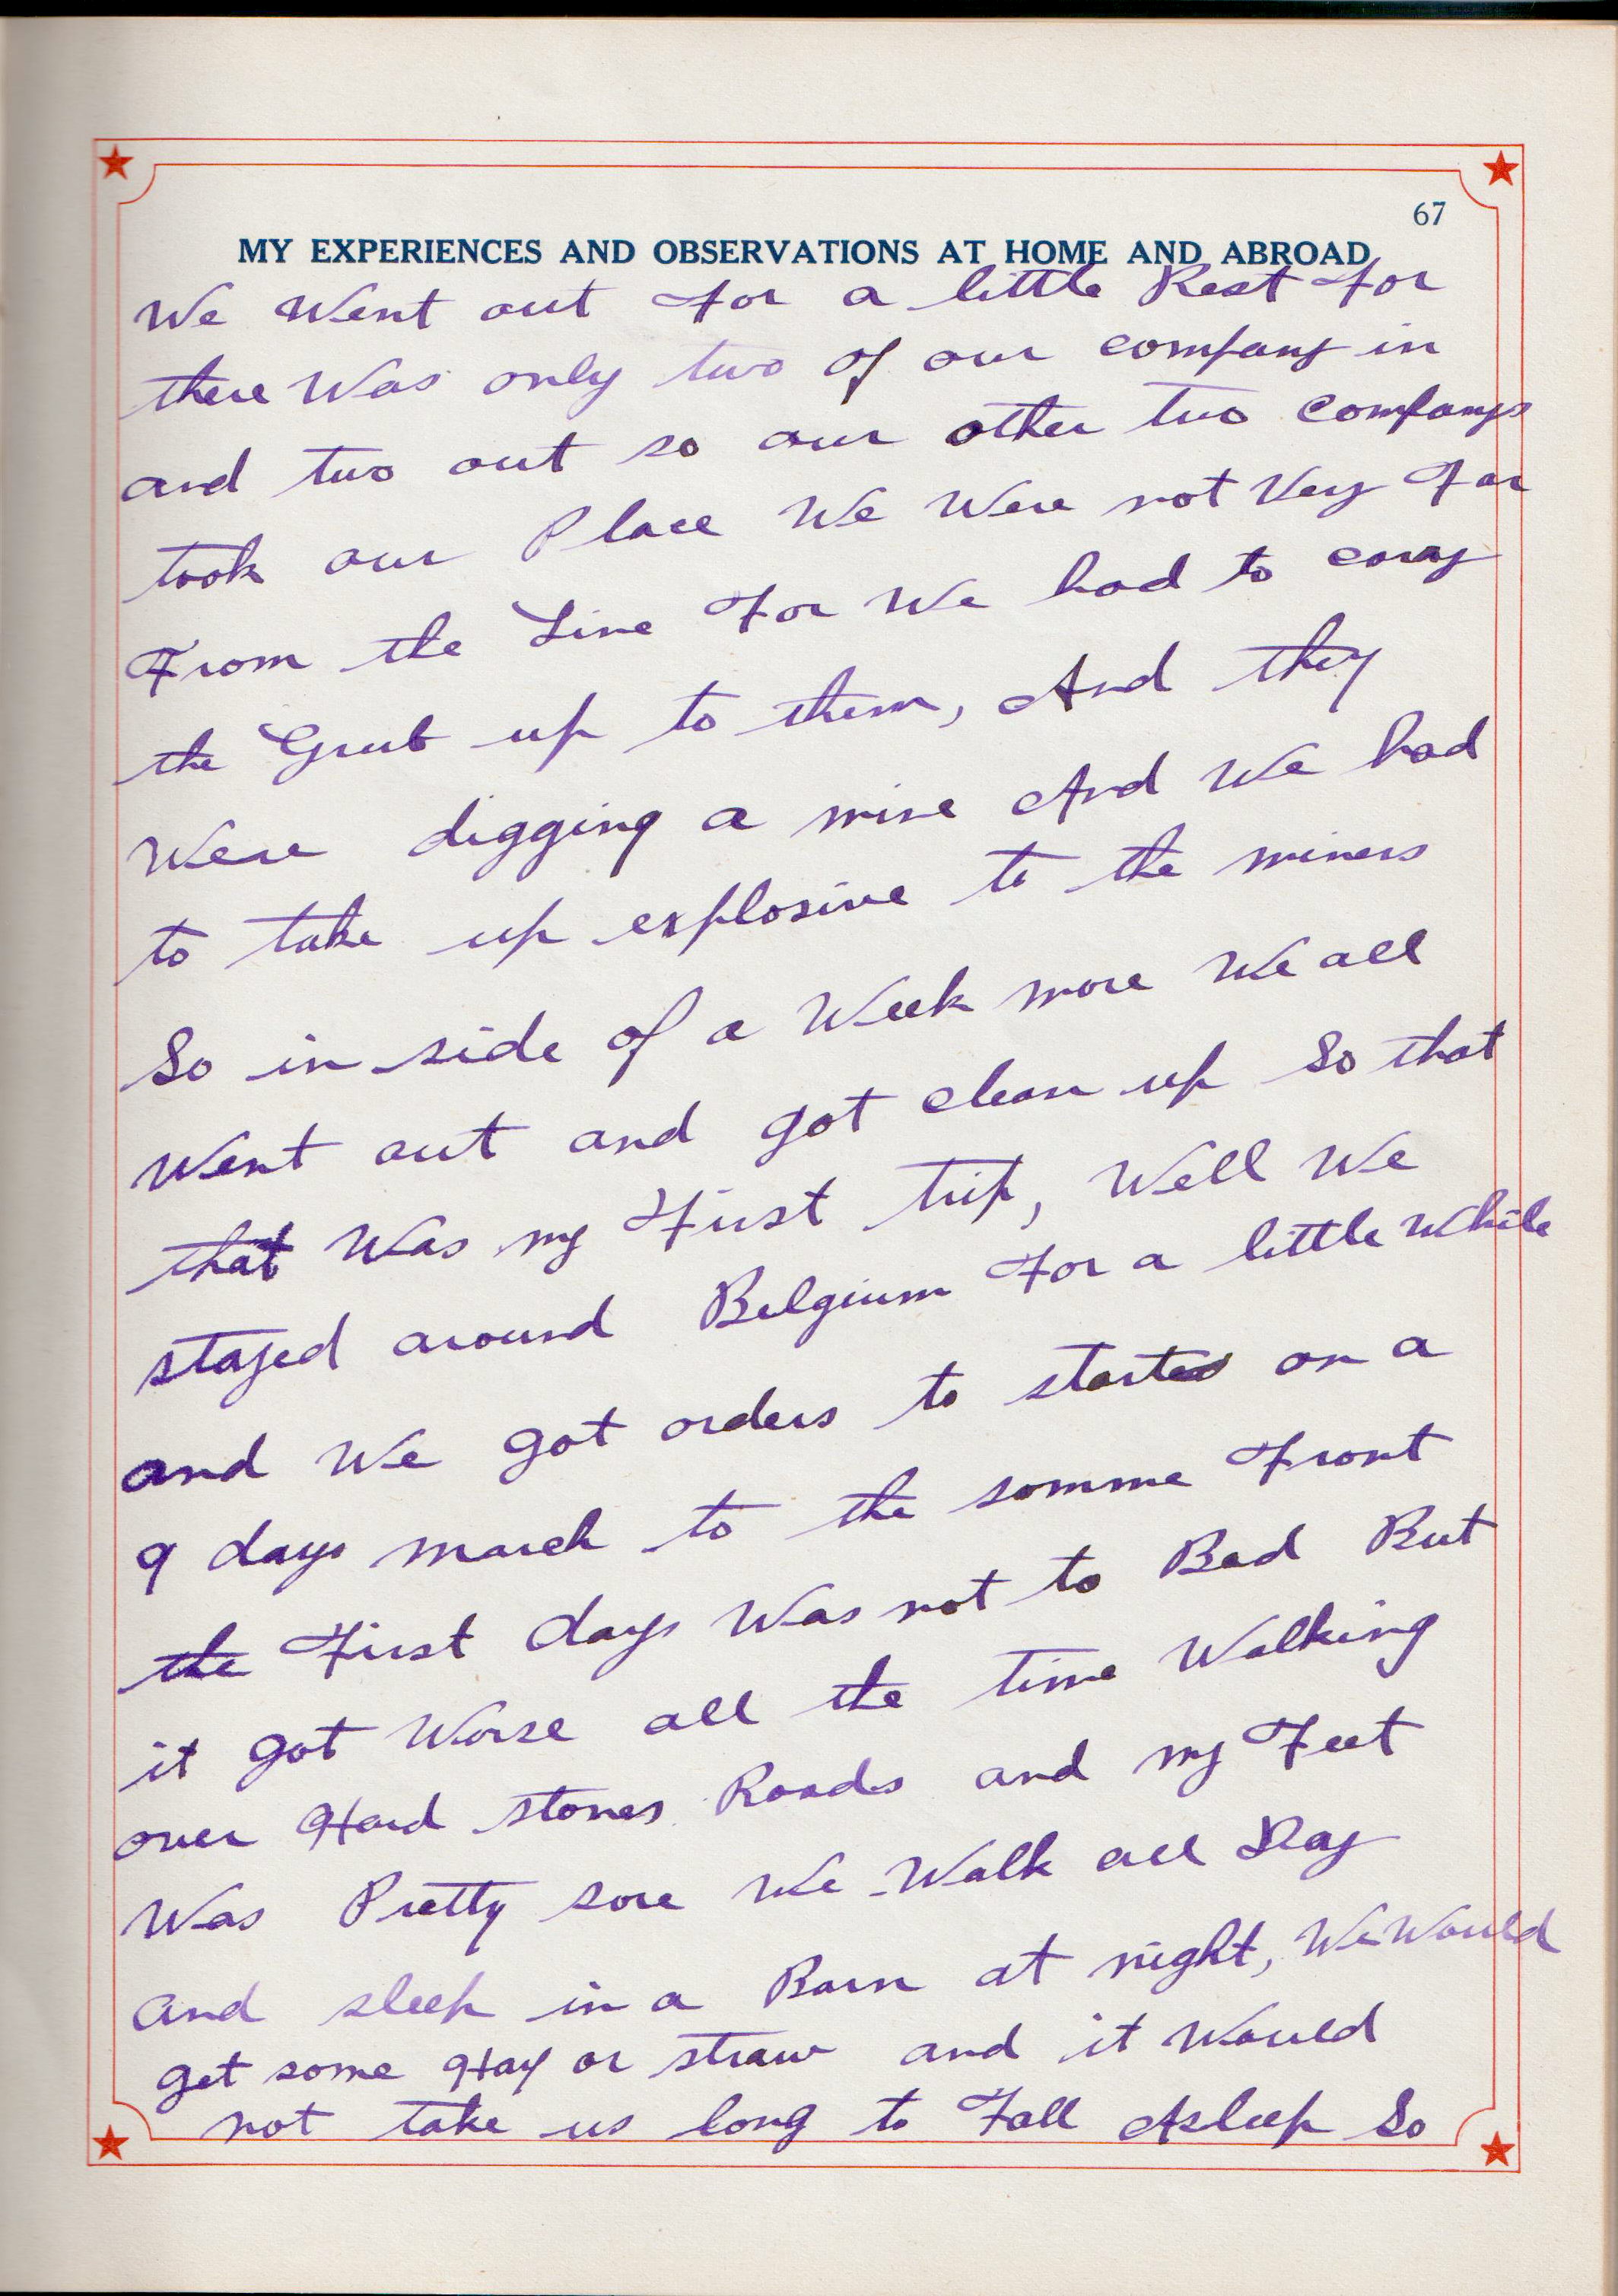 67
MY EXPERIENCES AND OBSERVATIONS AT HOME AND ABROAD
We Went out for a little Rest for
there Was only two of our company in
and two out so our other two companys
took our Place We Were not Very Far
From the Line For We had to cary
the Grub up to them, And they
Were digging a mine And We had
to take up explosive to the miners
So in side of a Week more We all
Went out and got clean up So that
that Was my First trip, Well We
stayed around Belgium For a little While
and We got orders to started on a
9 days march to the somme Front
the First days Was not to Bad But
it got Worse all the time Walking
over Hard stones Roads and my Feet
Was Pretty sore We Walk all Day
and sleep in a Barn at night, We Would
get some Hay or straw and it Would
not take us long to Fall Asleep So